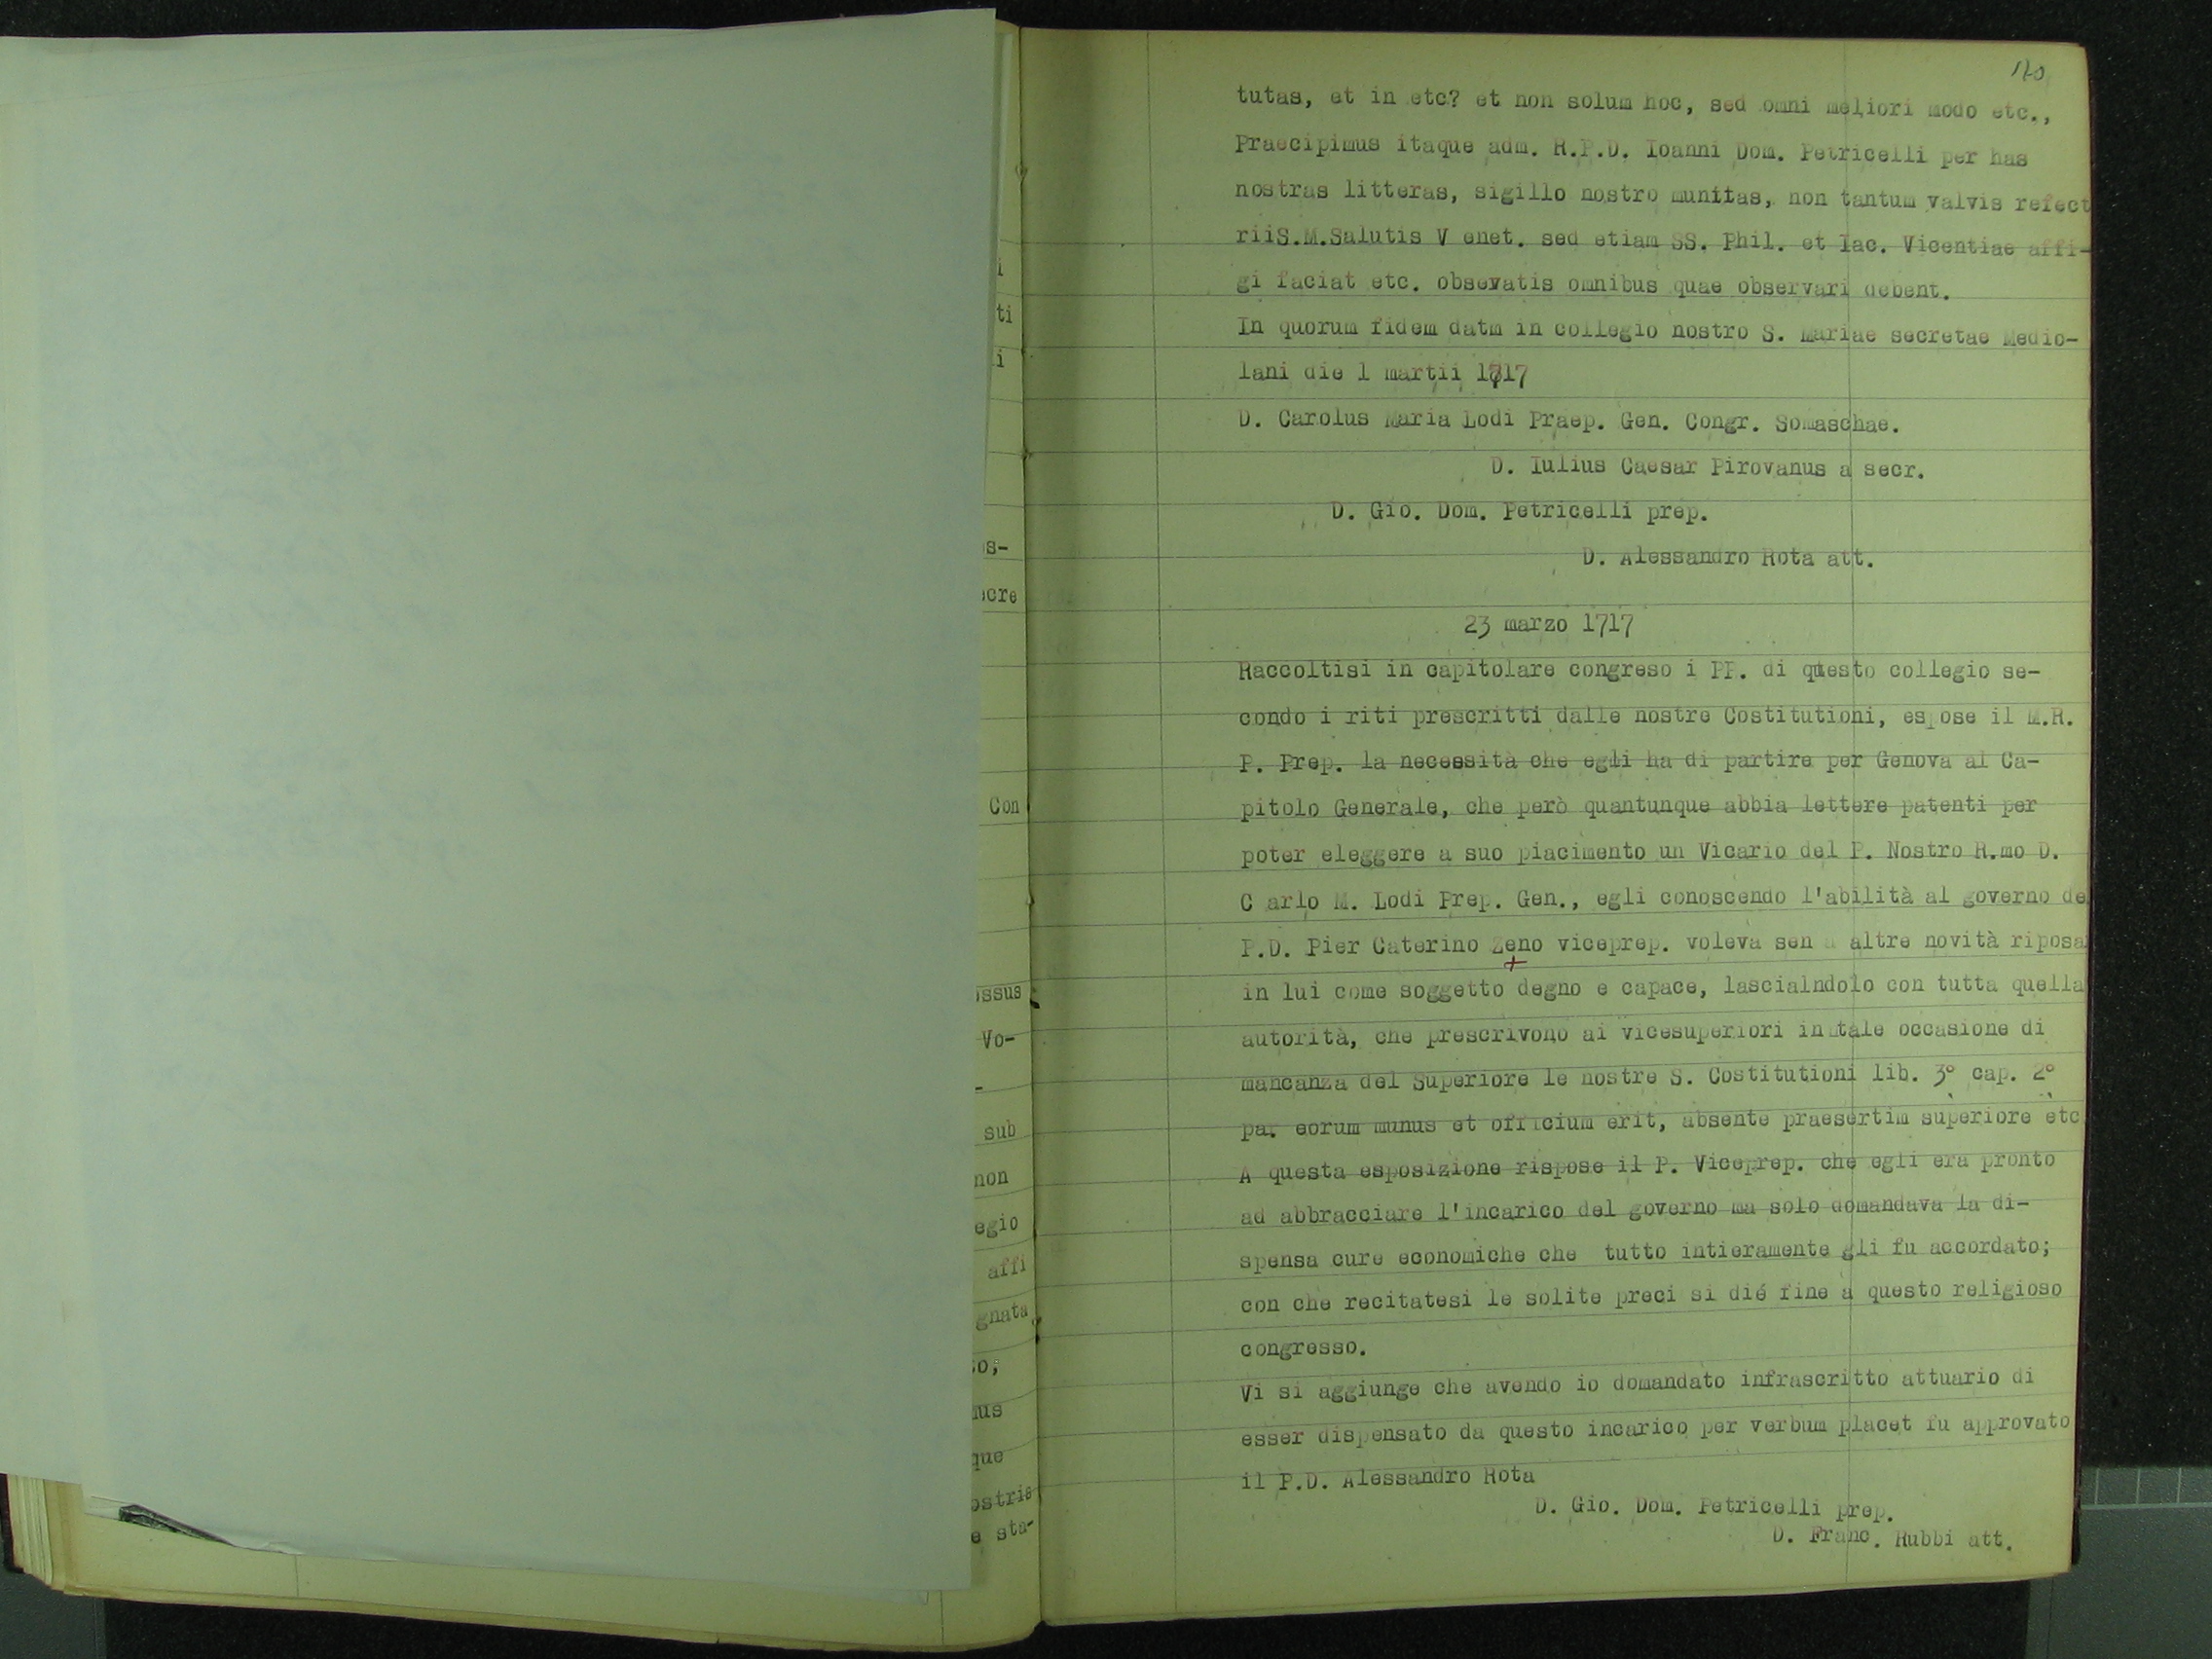 i
ti
i
s-
cre
Con
ssus
Vo-
-
sub
non
egio
affi
gnata
o;
us
que
ostris
e sta-
120
tutas, et in etc? et non solum hoc, sed omni meliori modo etc.,
Praecipimus itaque adm. R.P.D. Ioanni Dom. Petricelli per has
nostras litteras, sigillo nostro munitas, non tantum valvis refect
riiS.M.Salutis V enet. sed etiam SS. Phil. et Iac. Vicentiae affi-
gi faciat etc. obsevatis omnibus quae observari debent.
In quorum fidem datm in collegio nostro S. Mariae secretae Medio-
lani die 1 martii 1717
D. Carolus Maria Lodi Praep. Gen. Congr. Somaschae.
D. Iulius Caesar Pirovanus a secr.
D. Gio. Dom. Petricelli prep.
D. Alessandro Rota att.
23 marzo 1717
Raccoltisi in capitolare congreso i PP. di questo collegio se-
condo i riti prescritti dalle nostre Costitutioni, espose il M.R.
P. Prep. la necessità che egli ha di partire per Genova al Ca-
pitolo Generale, che però quantunque abbia lettere patenti per
poter eleggere a suo piacimento un Vicario del P. Nostro R.mo D.
C arlo M. Lodi Prep. Gen., egli conoscendo l'abilità al governo de
P.D. Pier Caterino Zeno viceprep. voleva sen a altre novità riposa
+
in lui come soggetto degno e capace, lascialndolo con tutta quella
autorità, che prescrivono ai vicesuperiori in tale occasione di
mancanza del Superiore le nostre S. Costitutioni lib. 3° cap. 2°
par eorum munus et officium erit, absente praesertim superiore etc
A questa esposizione rispose il P. Viceprep. che egli era pronto
ad abbracciare l'incarico del governo ma solo domandava la di-
spensa cure economiche che tutto intieramente gli fu accordato;
con che recitatesi le solite preci si dié fine a questo religioso
congresso.
Vi si aggiunge che avendo io domandato infrascritto attuario di
esser dispensato da questo incarico per verbum placet fu approvato
il P.D. Alessandro Rota
D. Gio. Dom. Petricelli prep.
D. Franc. Rubbi att.